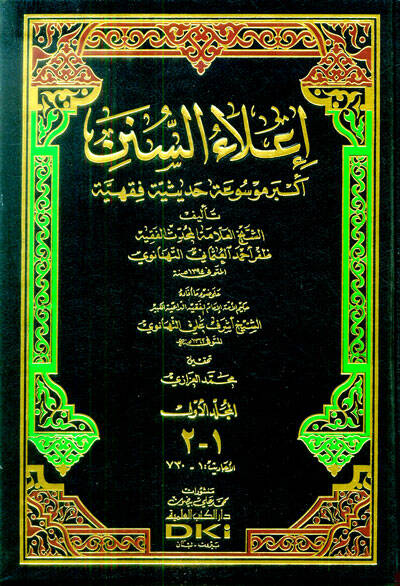 إعلاء السنن
أكبر موسوعة حديثية فقهية
تأليف
الشيخ العلامة المحدث الفقيه
ظفر أحمد العثماني التهانوي
المتوفى ١٣٩٤ هـ سنة
على ضوء ما أفاده
حكيم الأمة الإمام الفقيه الداعية الكبير
الشيخ أشرف علي التهانوي
المتوفى
تحقيق
محمد العزازي
المجلد الأول
١-٢
الأحاديث: ١ - ٧٣٠
منشورات
محمد علي بيضون
دار الكتب العلمية
DKi
بيروت - لبنان